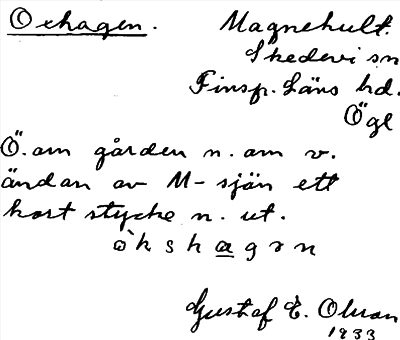 Oxhagen. Magnehult.
Skedevi sn
Finsp. Läns hd.
Ögl
Ö. om gården n. om v.
ändan av M-sjön ett
kort stycke n. ut.
Gustaf E. Olsson
1933